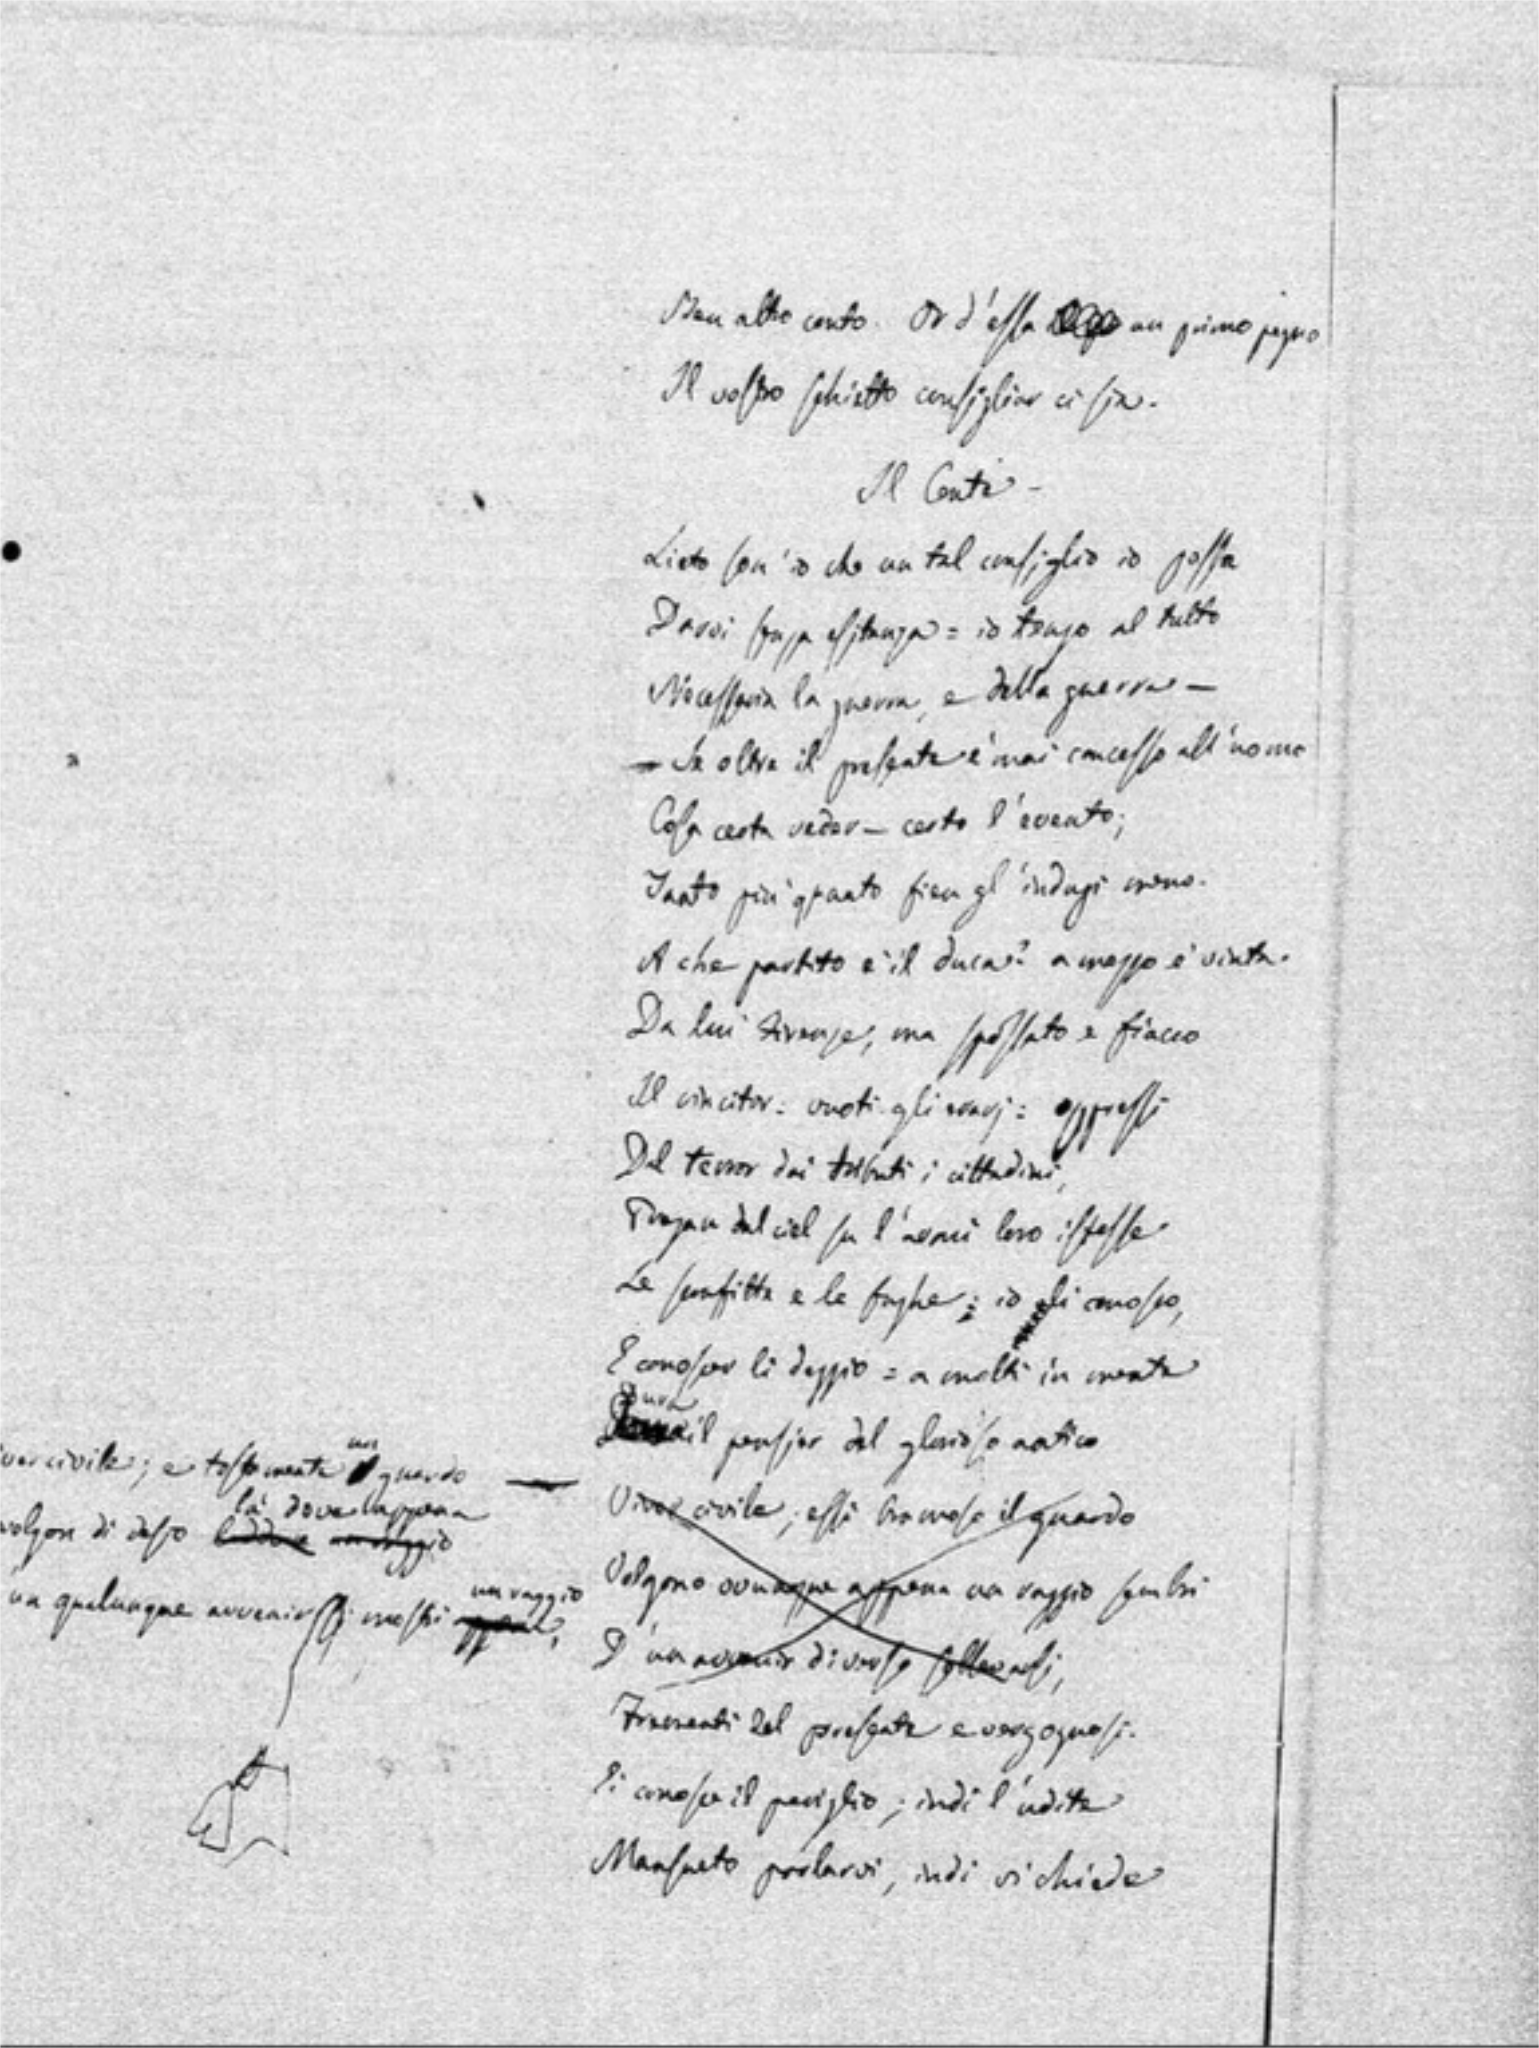 Men alto conto. Or d'essa un primo pegno
Il vostro schietto consigliar ci sia.
Il Conte -
Lieto son'io che un tal consiglio io possa
Darvi senza esitanza = io tengo al tutto
Necessaria la guerra, e della guerra —
— Se oltre il presente è mai concesso all'uomo
Cosa certa veder — certo l'evento;
Tanto più quanto fien gl'indugi meno.
A che partito è il duca? a mezzo è vinta.
Da lui Firenze, ma spossato e fiacco
Il vincitor = vuoti gli erarj = oppressi
Dal terror dai tributi i cittadini,
Pregan dal ciel su l'armi loro istesse
Le sconfitte e le fughe; io li conosco,
E conoscer li deggio = a molti in mente
Dura
il pensier del glorioso antico
Viver civile; essi bramoso il guardo
Volgono ovunque appena un raggio sembri
D'un avvenir diverso sollevarsi,
Frementi del presente e vergognosi.
Ei conosce il periglio; indi l'udite
Mansueto parlarvi, indi vi chiede
viver civile; e tostamente un guardo —
volgon di desio là dove appena
un qualunque avvenir si mostri un raggio